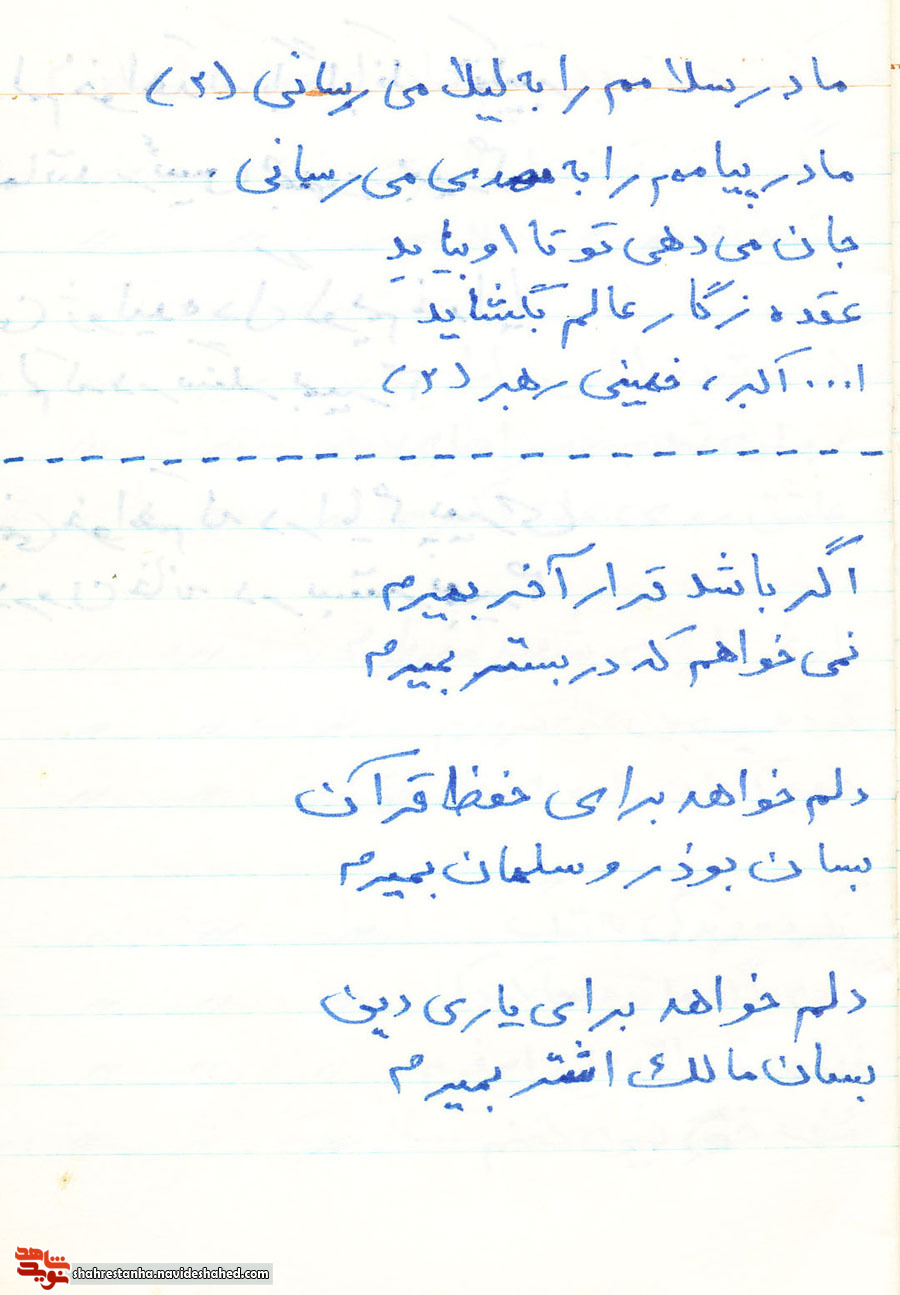 مادر سلامم را به لیلا می رسانی (۲)
مادر پیامم را به مهدی می رسانی .
جان می دهی تو تا او بیاید
عقده ز کار عالم بگشاید
ا... اکبر ، خمینی رهبر (۲)
اگر باشد قرار آخر بمیرم
نمی خواهم که در بستر بمیرم
دلم خواهد برای حفظ قرآن
بسان بوذر و سلمان بمیرم
دلم خواهد برای یاری دین
بسان مالک اشتر بمیرم
نوید شاهد
shahrestanha.navideshahed.com